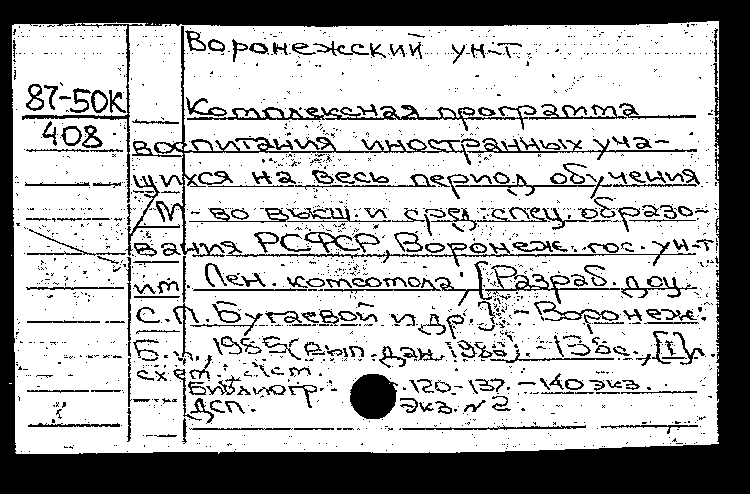 Воронежский ун-т.
87-50К
408
Комплексная программа
воспитания иностранных уча-
щихся на весь период обучения
/М-во высш. и сред. спец. образо-
вания РСФСР, Воронеж. гос. ун-т
им. Лен. комсомола; [Разраб. доц.
С.П. Бугаевой и др.]. - Воронеж:
Б.и., 1985 (вып. дан. 1986). - 138 с., [1] л.
схем.
Библиогр.: с. 120-137. - 140 экз.
ДСП. Экз. № 2.